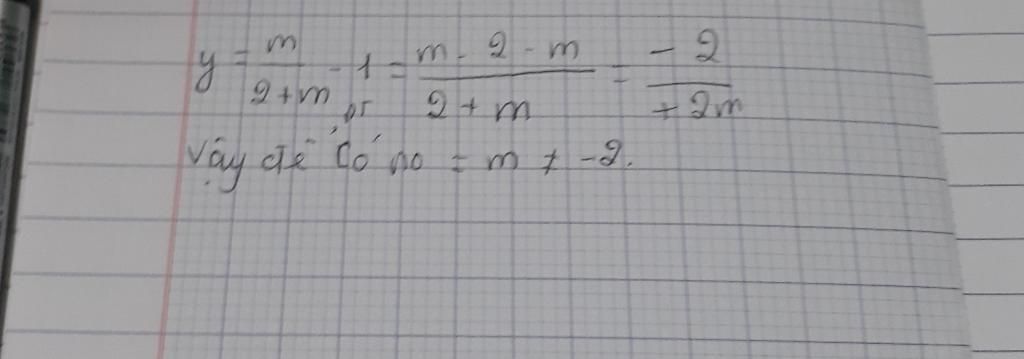 y = m/(2+m) - 1 = (m - 2 - m)/(2 + m) = (- 2)/(+ 2m)
pt
Vậy để có no = m ≠ -2.